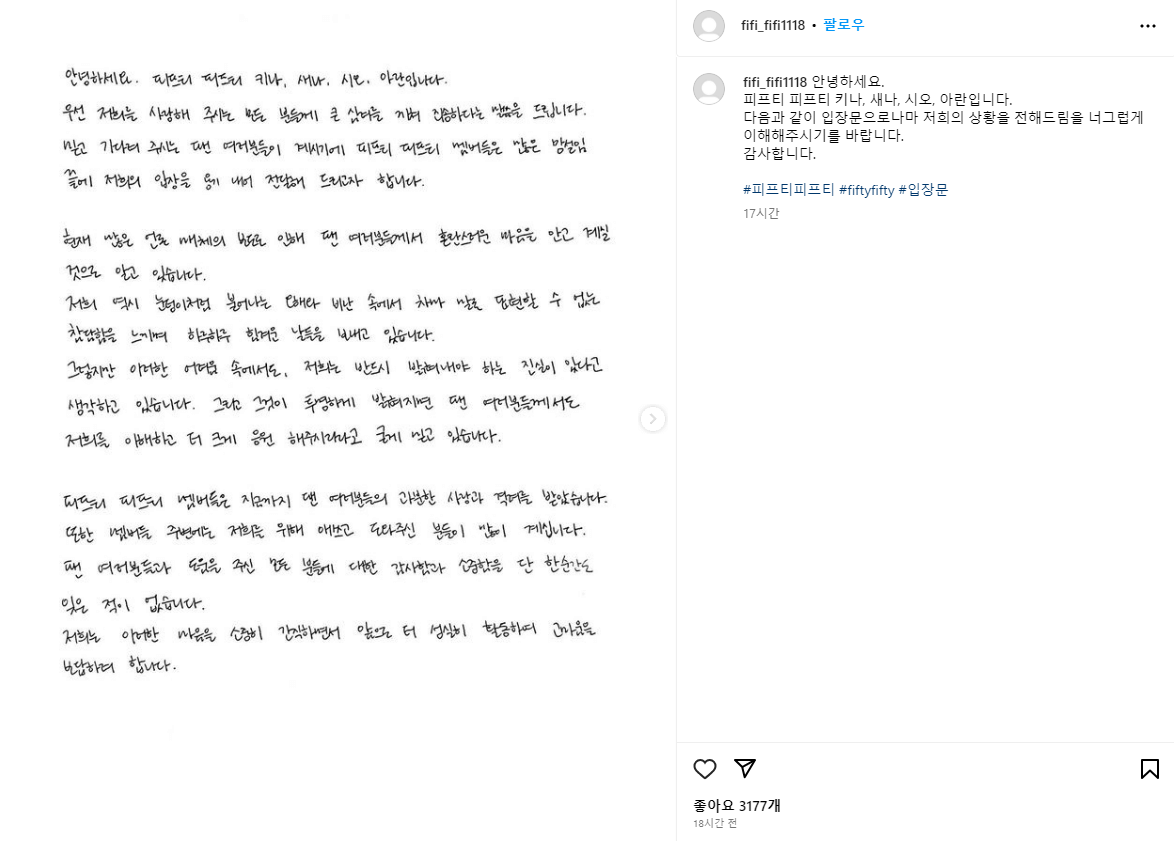 안녕하세요. 피프티 피프티 키나, 새나, 시오, 아란입니다.
우선 저희를 사랑해 주시는 모든 분들께 큰 심려를 끼쳐 죄송하다는 말씀을 드립니다.
믿고 기다려 주시는 팬 여러분들이 계시기에 피프티 피프티 멤버들은 많은 망설임
끝에 저희의 입장을 용기 내어 전달해 드리고자 합니다.
현재 많은 언론 매체의 보도로 인해 팬 여러분들께서 혼란스러운 마음을 안고 계실
것으로 알고 있습니다.
저희 역시 눈덩이처럼 불어나는 오해와 비난 속에서 차마 말로 표현할 수 없는
참담함을 느끼며 하루하루 힘겨운 날들을 보내고 있습니다.
그렇지만 이러한 어려움 속에서도, 저희는 반드시 밝혀내야 하는 진실이 있다고
생각하고 있습니다. 그리고 그것이 투명하게 밝혀지면 팬 여러분들께서도
저희를 이해하고 더 크게 응원 해주시리라고 굳게 믿고 있습니다.
피프티 피프티 멤버들은 지금까지 팬 여러분들의 과분한 사랑과 격려를 받았습니다.
또한 멤버들 주변에는 저희를 위해 애쓰고 도와주신 분들이 많이 계십니다.
팬 여러분들과 도움을 주신 모든 분들에 대한 감사함과 소중함을 단 한순간도
잊은 적이 없습니다.
저희는 이러한 마음을 소중히 간직하면서 앞으로 더 성실히 활동하며 고마움을
보답하려 합니다.
fifi_fifi1118 • 팔로우
fifi_fifi1118 안녕하세요.
피프티 피프티 키나, 새나, 시오, 아란입니다.
다음과 같이 입장문으로나마 저희의 상황을 전해드림을 너그럽게
이해해주시기를 바랍니다.
감사합니다.
#피프티피프티 #fiftyfifty #입장문
17시간
좋아요 3177개
18시간 전